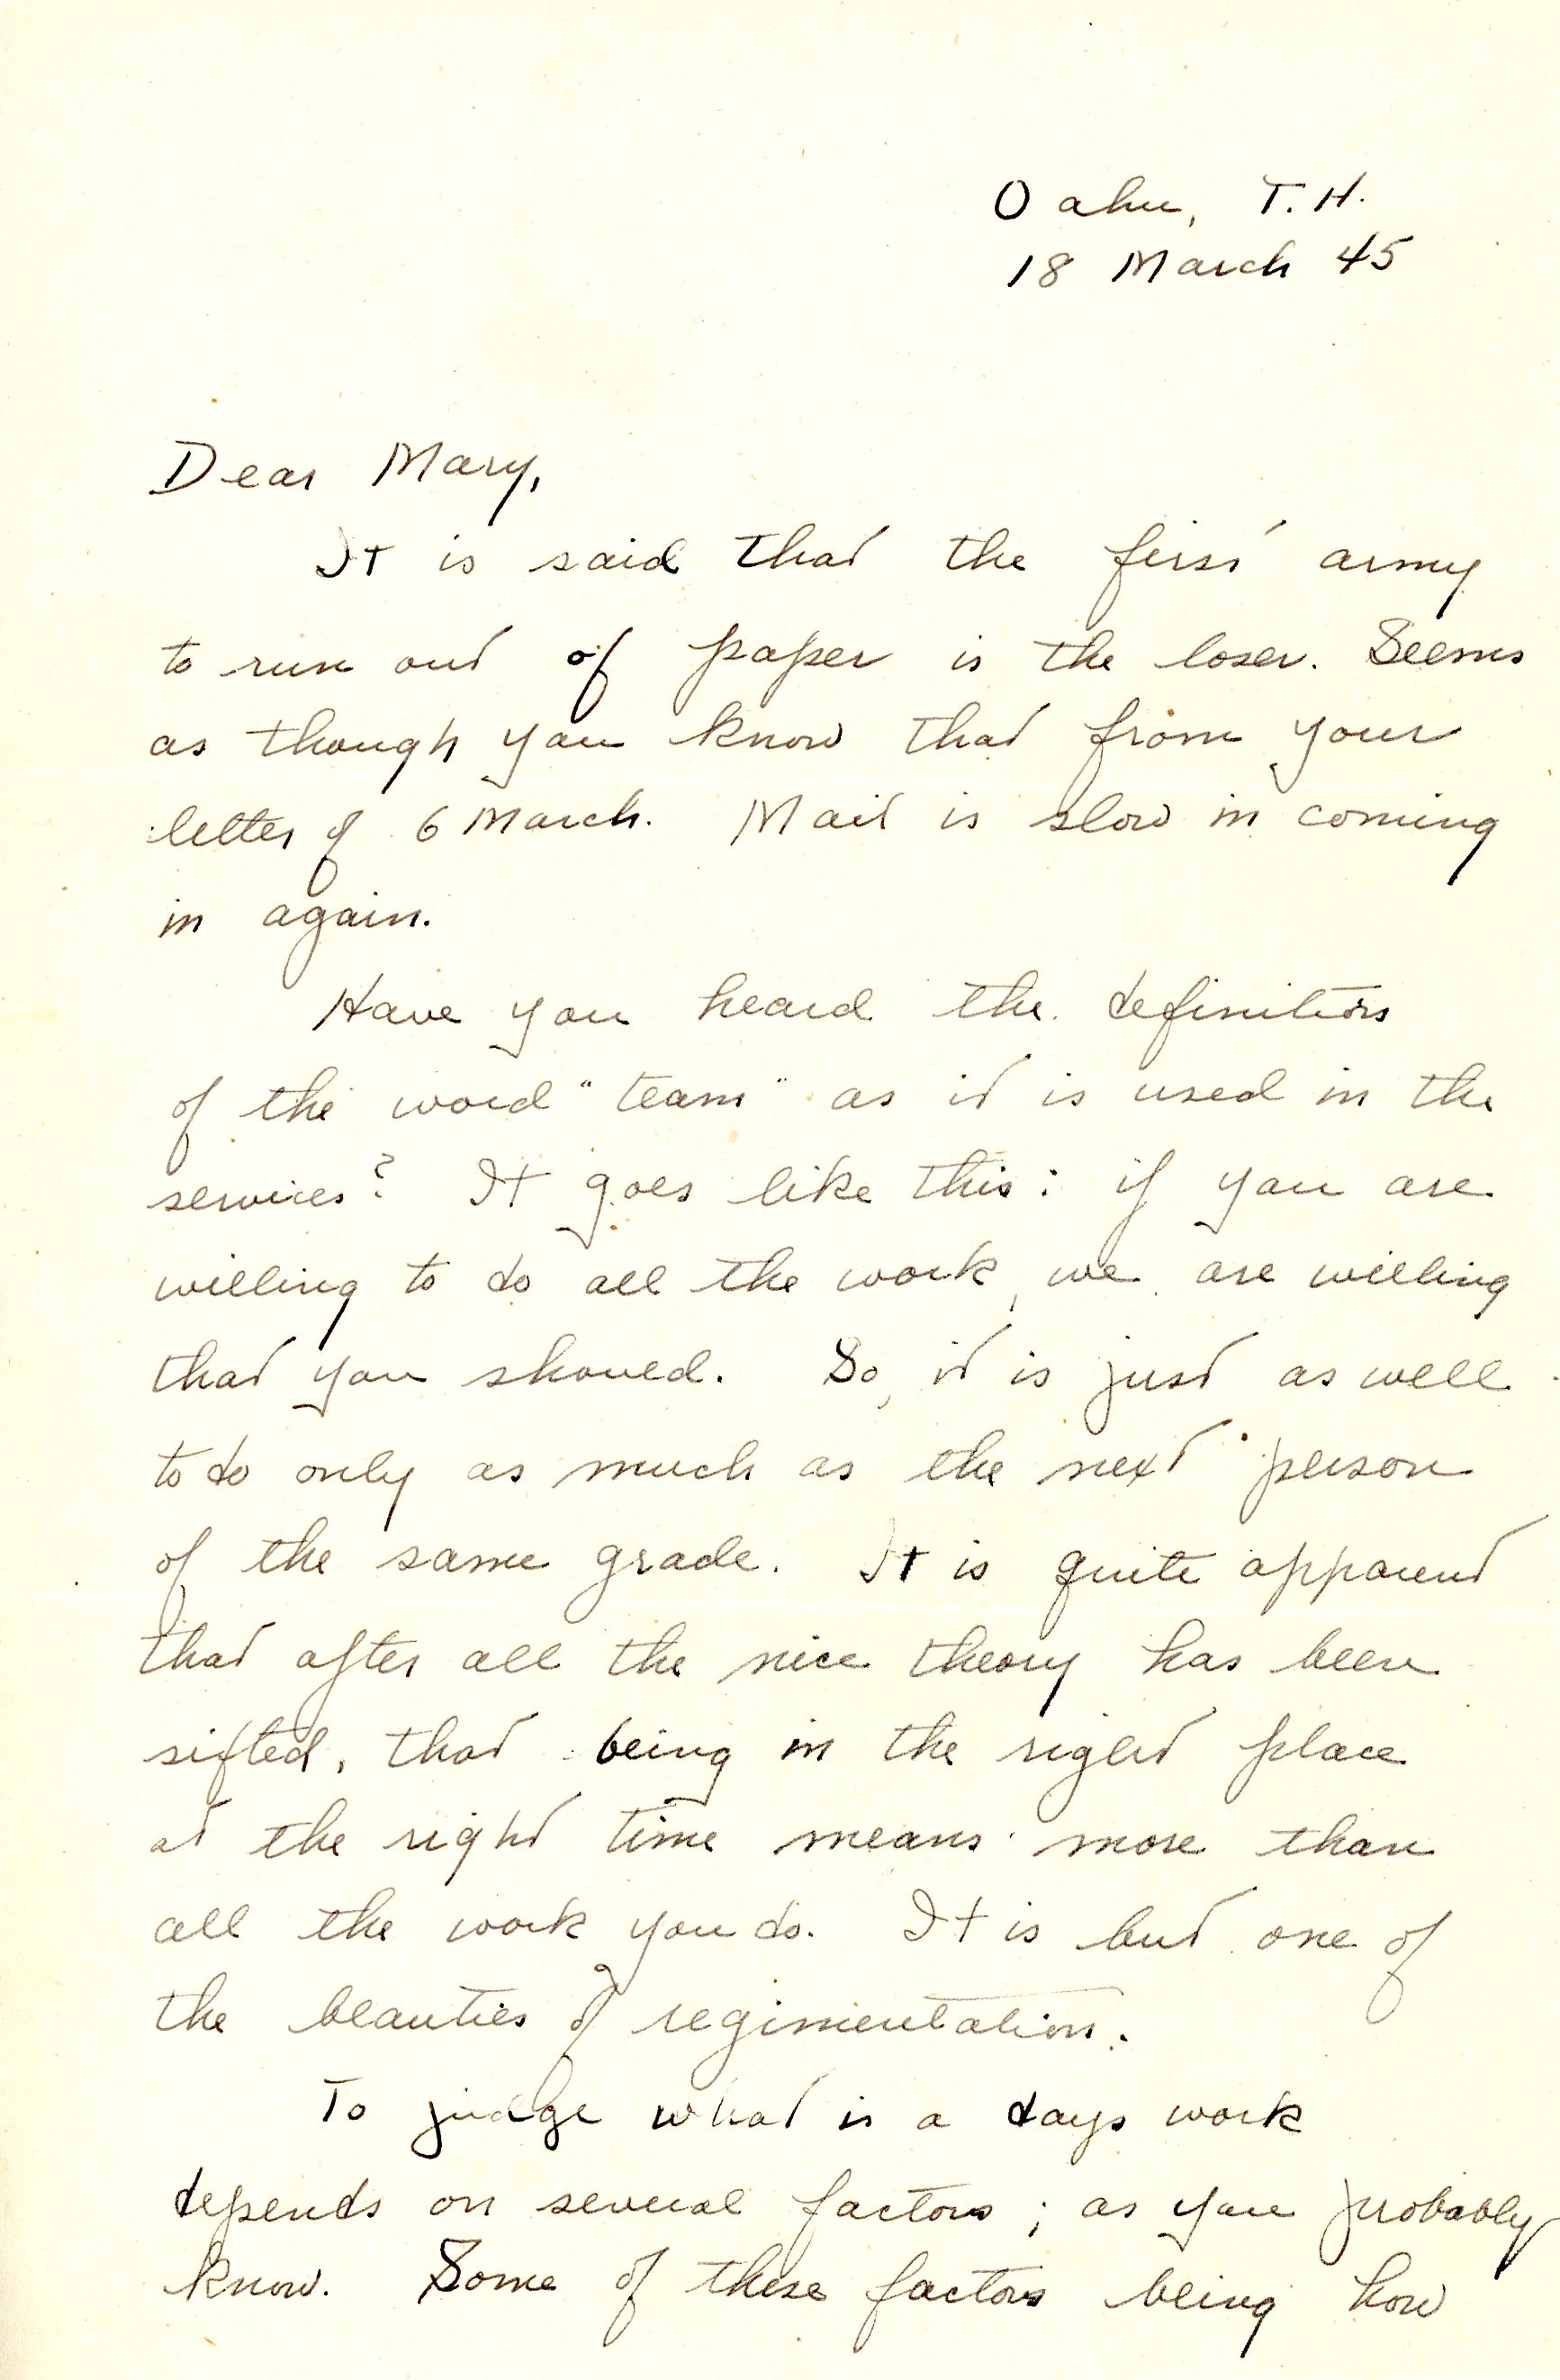 Oahu, T.H.
18 March 45
Dear Mary,
It is said that the first army
to run out of paper is the loser. Seems
as though you know that from your
letter of 6 March. Mail is slow in coming
in again.
Have you heard the definition
of the word "team" as it is used in the
services? It goes like this: if you are
willing to do all the work, we are willing
that you should. So, it is just as well
to do only as much as the next person
of the same grade. It is quite apparent
that after all the nice theory has been
sifted, that being in the right place
at the right time means more than
all the work you do. It is but one of
the beauties of regimentation.
To judge what is a days work
depends on several factors; as you probably
know. Some of these factors being how